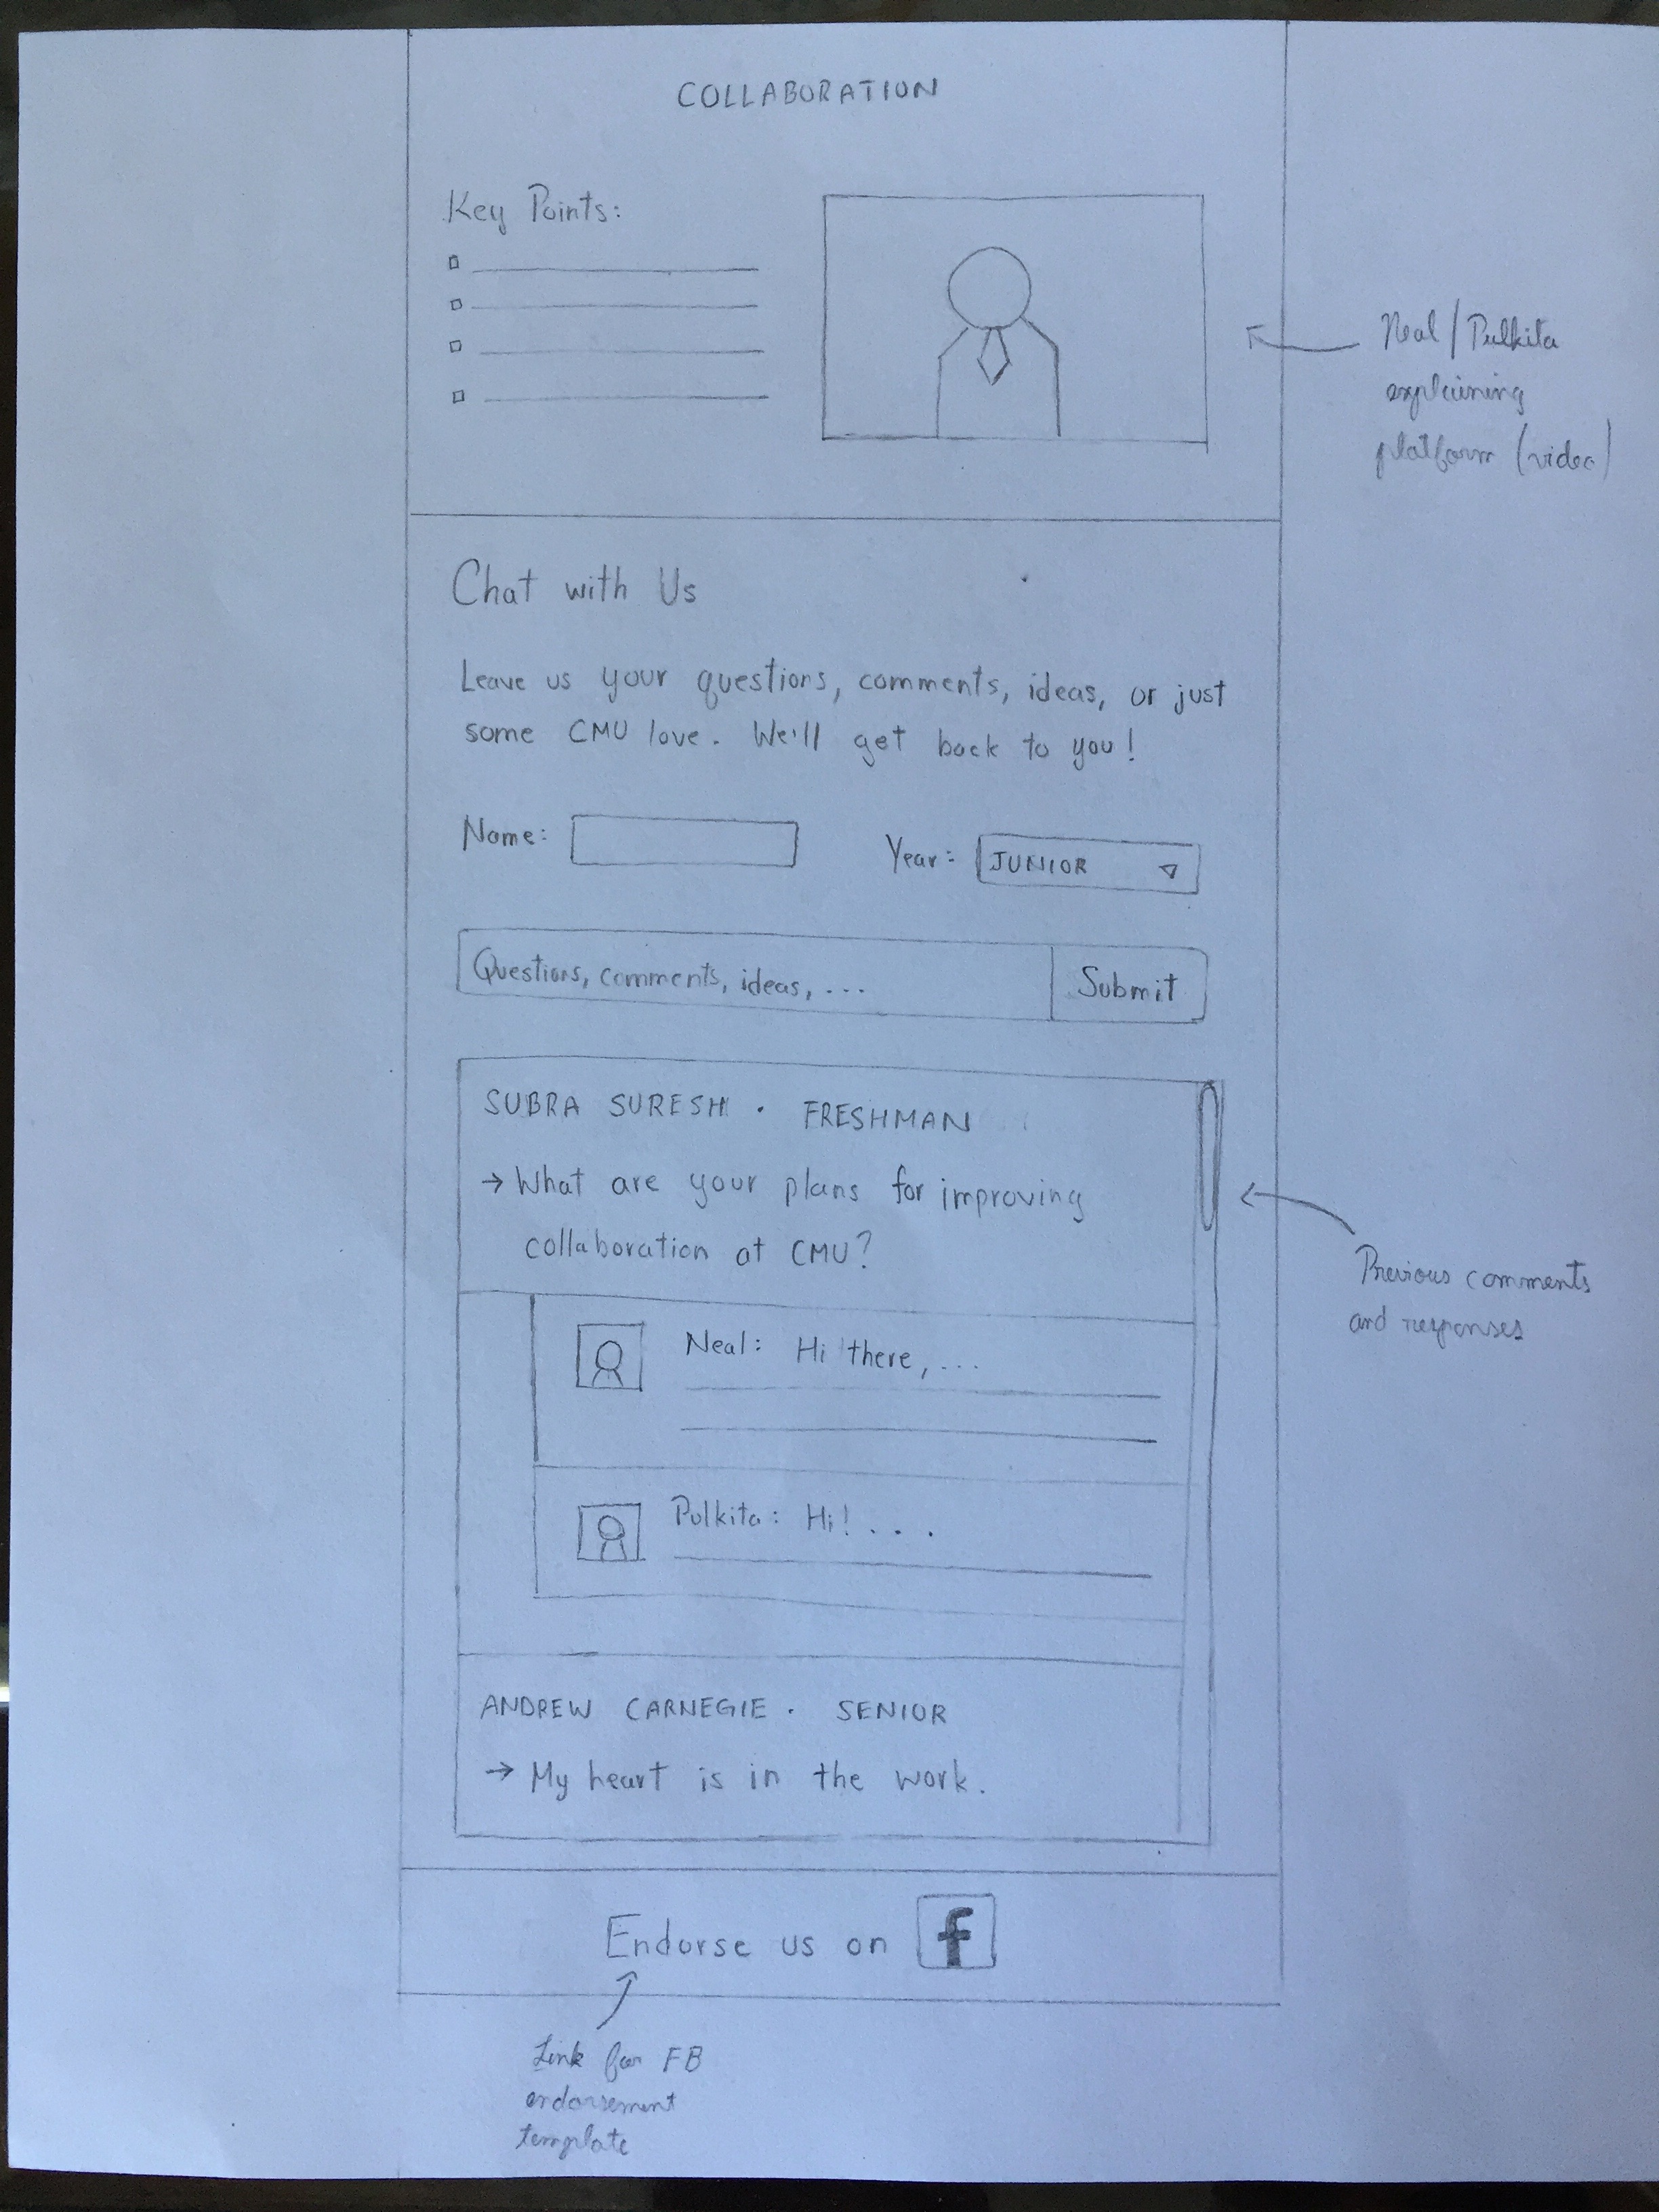 COLLABORATION
Key Points:
Neal/Pulkita
explaining
platform (video)
Chat with Us
Leave us your questions, comments, ideas, or just
some CMU love. We'll get back to you!
Name:
Year: JUNIOR
Questions, comments, ideas, ...
Submit
SUBRA SURESH · FRESHMAN
→ What are your plans for improving
collaboration at CMU?
Previous comments
and responses
Neal: Hi there, ...
Pulkita: Hi! ...
ANDREW CARNEGIE · SENIOR
→ My heart is in the work.
Endorse us on f
Link for FB
endorsement
template